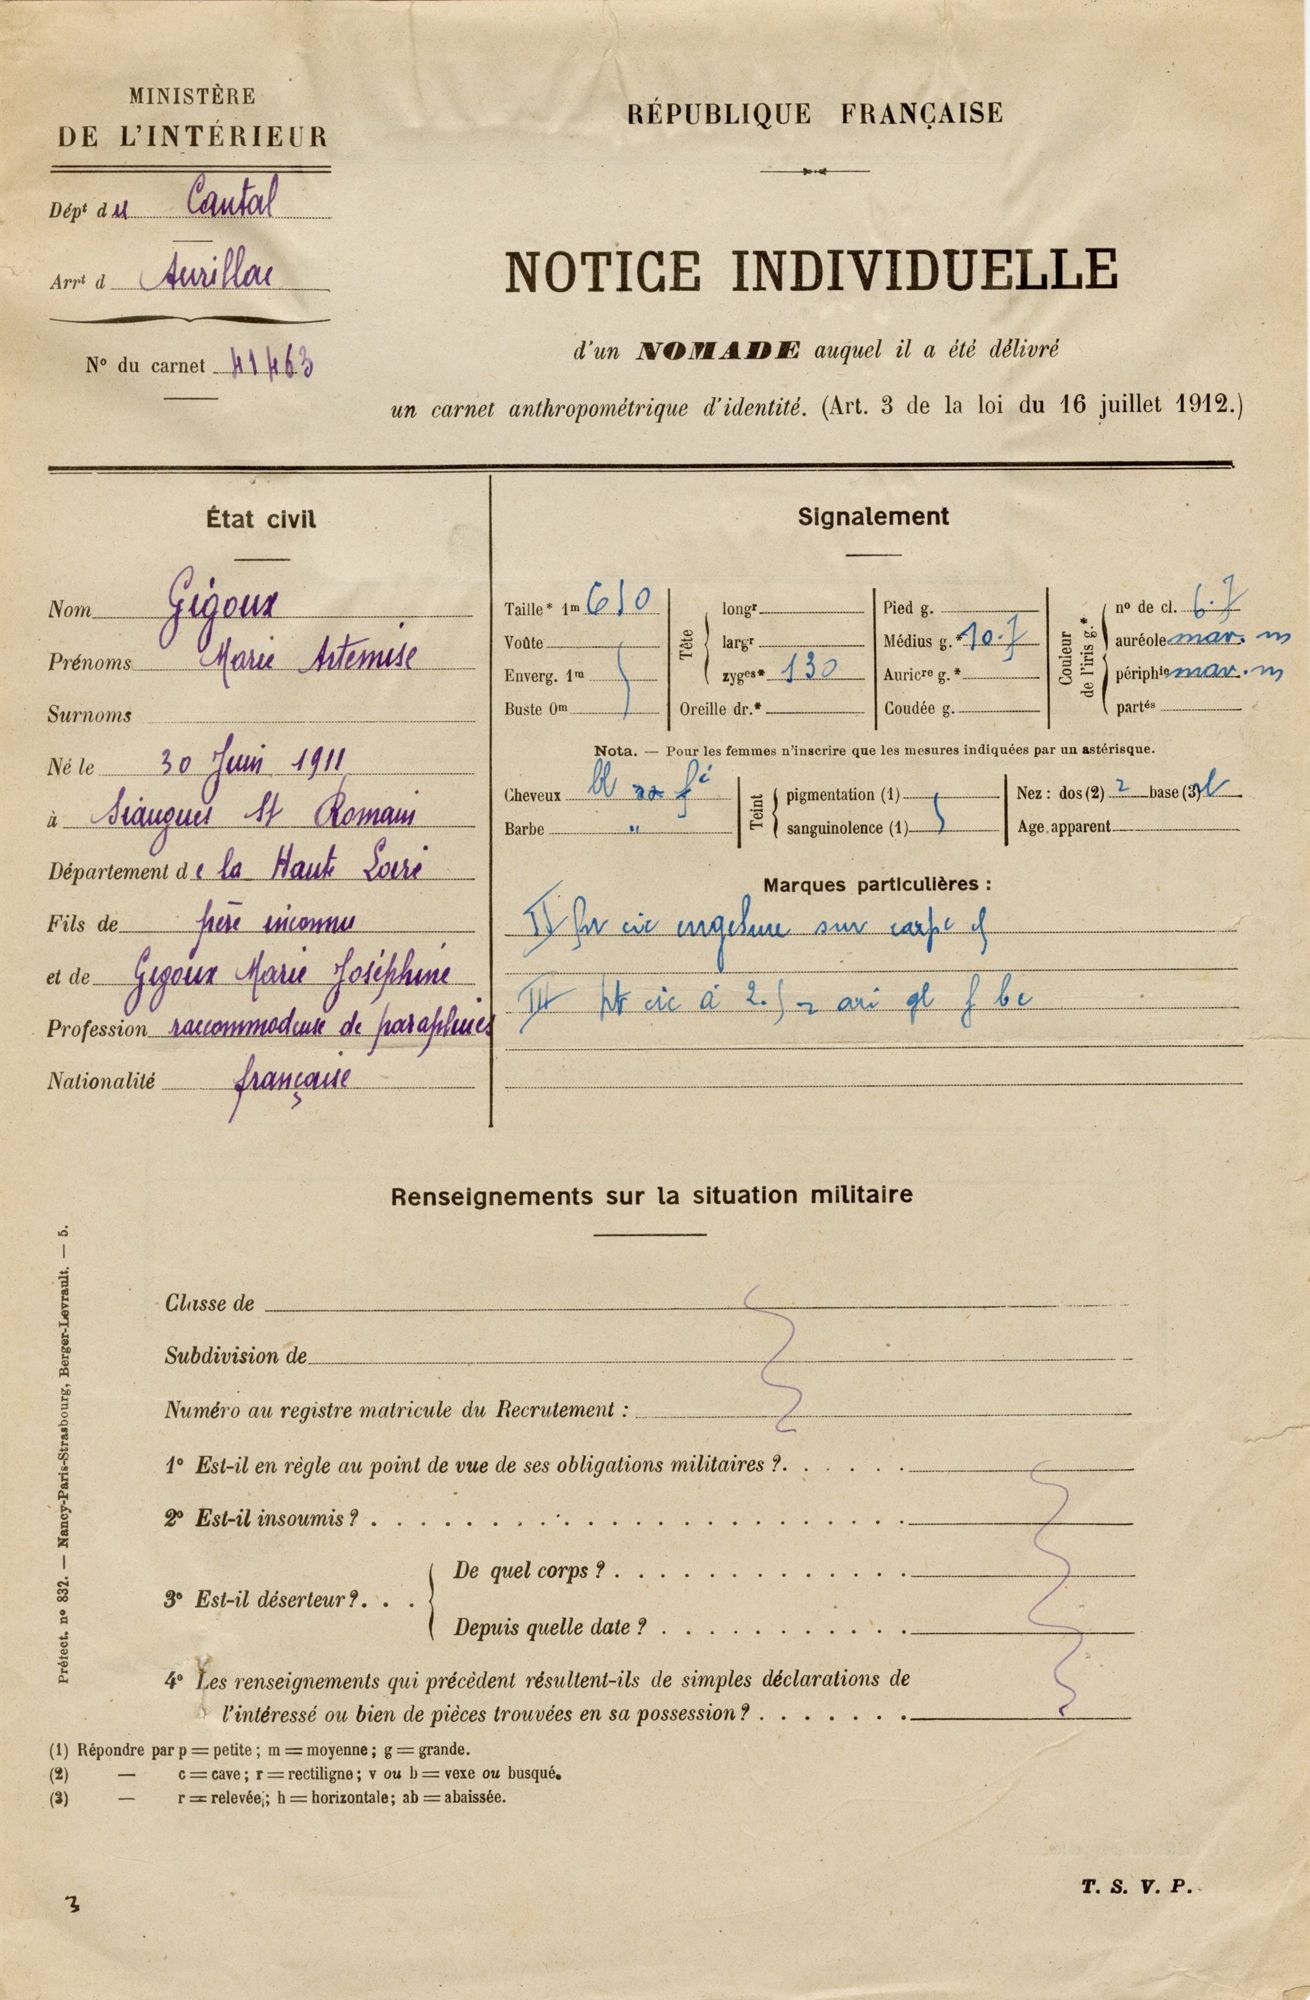 MINISTÈRE
DE L'INTÉRIEUR
Dépt du Cantal
Arrt d Aurillac
No du carnet 41463
RÉPUBLIQUE FRANÇAISE
NOTICE INDIVIDUELLE
d'un NOMADE auquel il a été délivré
un carnet anthropométrique d'identité. (Art. 3 de la loi du 16 juillet 1912.)
État civil
Nom Gigoux
Prénoms Marie Artemise
Surnoms
Né le 30 Juin 1911
à Siaugues St Romain
Département de la Haute Loire
Fils de père inconnu
et de Gigoux Marie Joséphine
Profession raccommodeuse de parapluies
Nationalité française
Signalement
Taille* 1m 610
Voûte
Enverg. 1m
Buste 0m
Tête
longr
largr
zyges* 130
Oreille dr.*
Pied g.
Médius g.* 10.7
Auricre g.*
Coudée g.
Couleur de l'iris g.*
no de cl. 6.7
auréole mar. m
périphie mar. m
partés
Nota. — Pour les femmes n'inscrire que les mesures indiquées par un astérisque.
Cheveux
Barbe "
Teint
pigmentation (1)
sanguinolence (1)
Nez : dos (2) 2 base (3)
Age apparent
Marques particulières :
II cic engelure sur carpe
III pt cic à 2.5
Renseignements sur la situation militaire
Classe de
Subdivision de
Numéro au registre matricule du Recrutement :
1o Est-il en règle au point de vue de ses obligations militaires ? . . . . . .
2o Est-il insoumis ? . . . . . . . . . . . . . . . . . . . . . . .
3o Est-il déserteur ? . . .
De quel corps ? . . . . . . . . . . . . .
Depuis quelle date ? . . . . . . . . . . .
4o Les renseignements qui précèdent résultent-ils de simples déclarations de
l'intéressé ou bien de pièces trouvées en sa possession ? . . . . . . .
(1) Répondre par p = petite ; m = moyenne ; g = grande.
(2) — c = cave ; r = rectiligne ; v ou b = vexe ou busqué.
(3) — r = relevée ; h = horizontale ; ab = abaissée.
Préfect. no 832. — Nancy-Paris-Strasbourg, Berger-Levrault. — 5.
T. S. V. P.
3